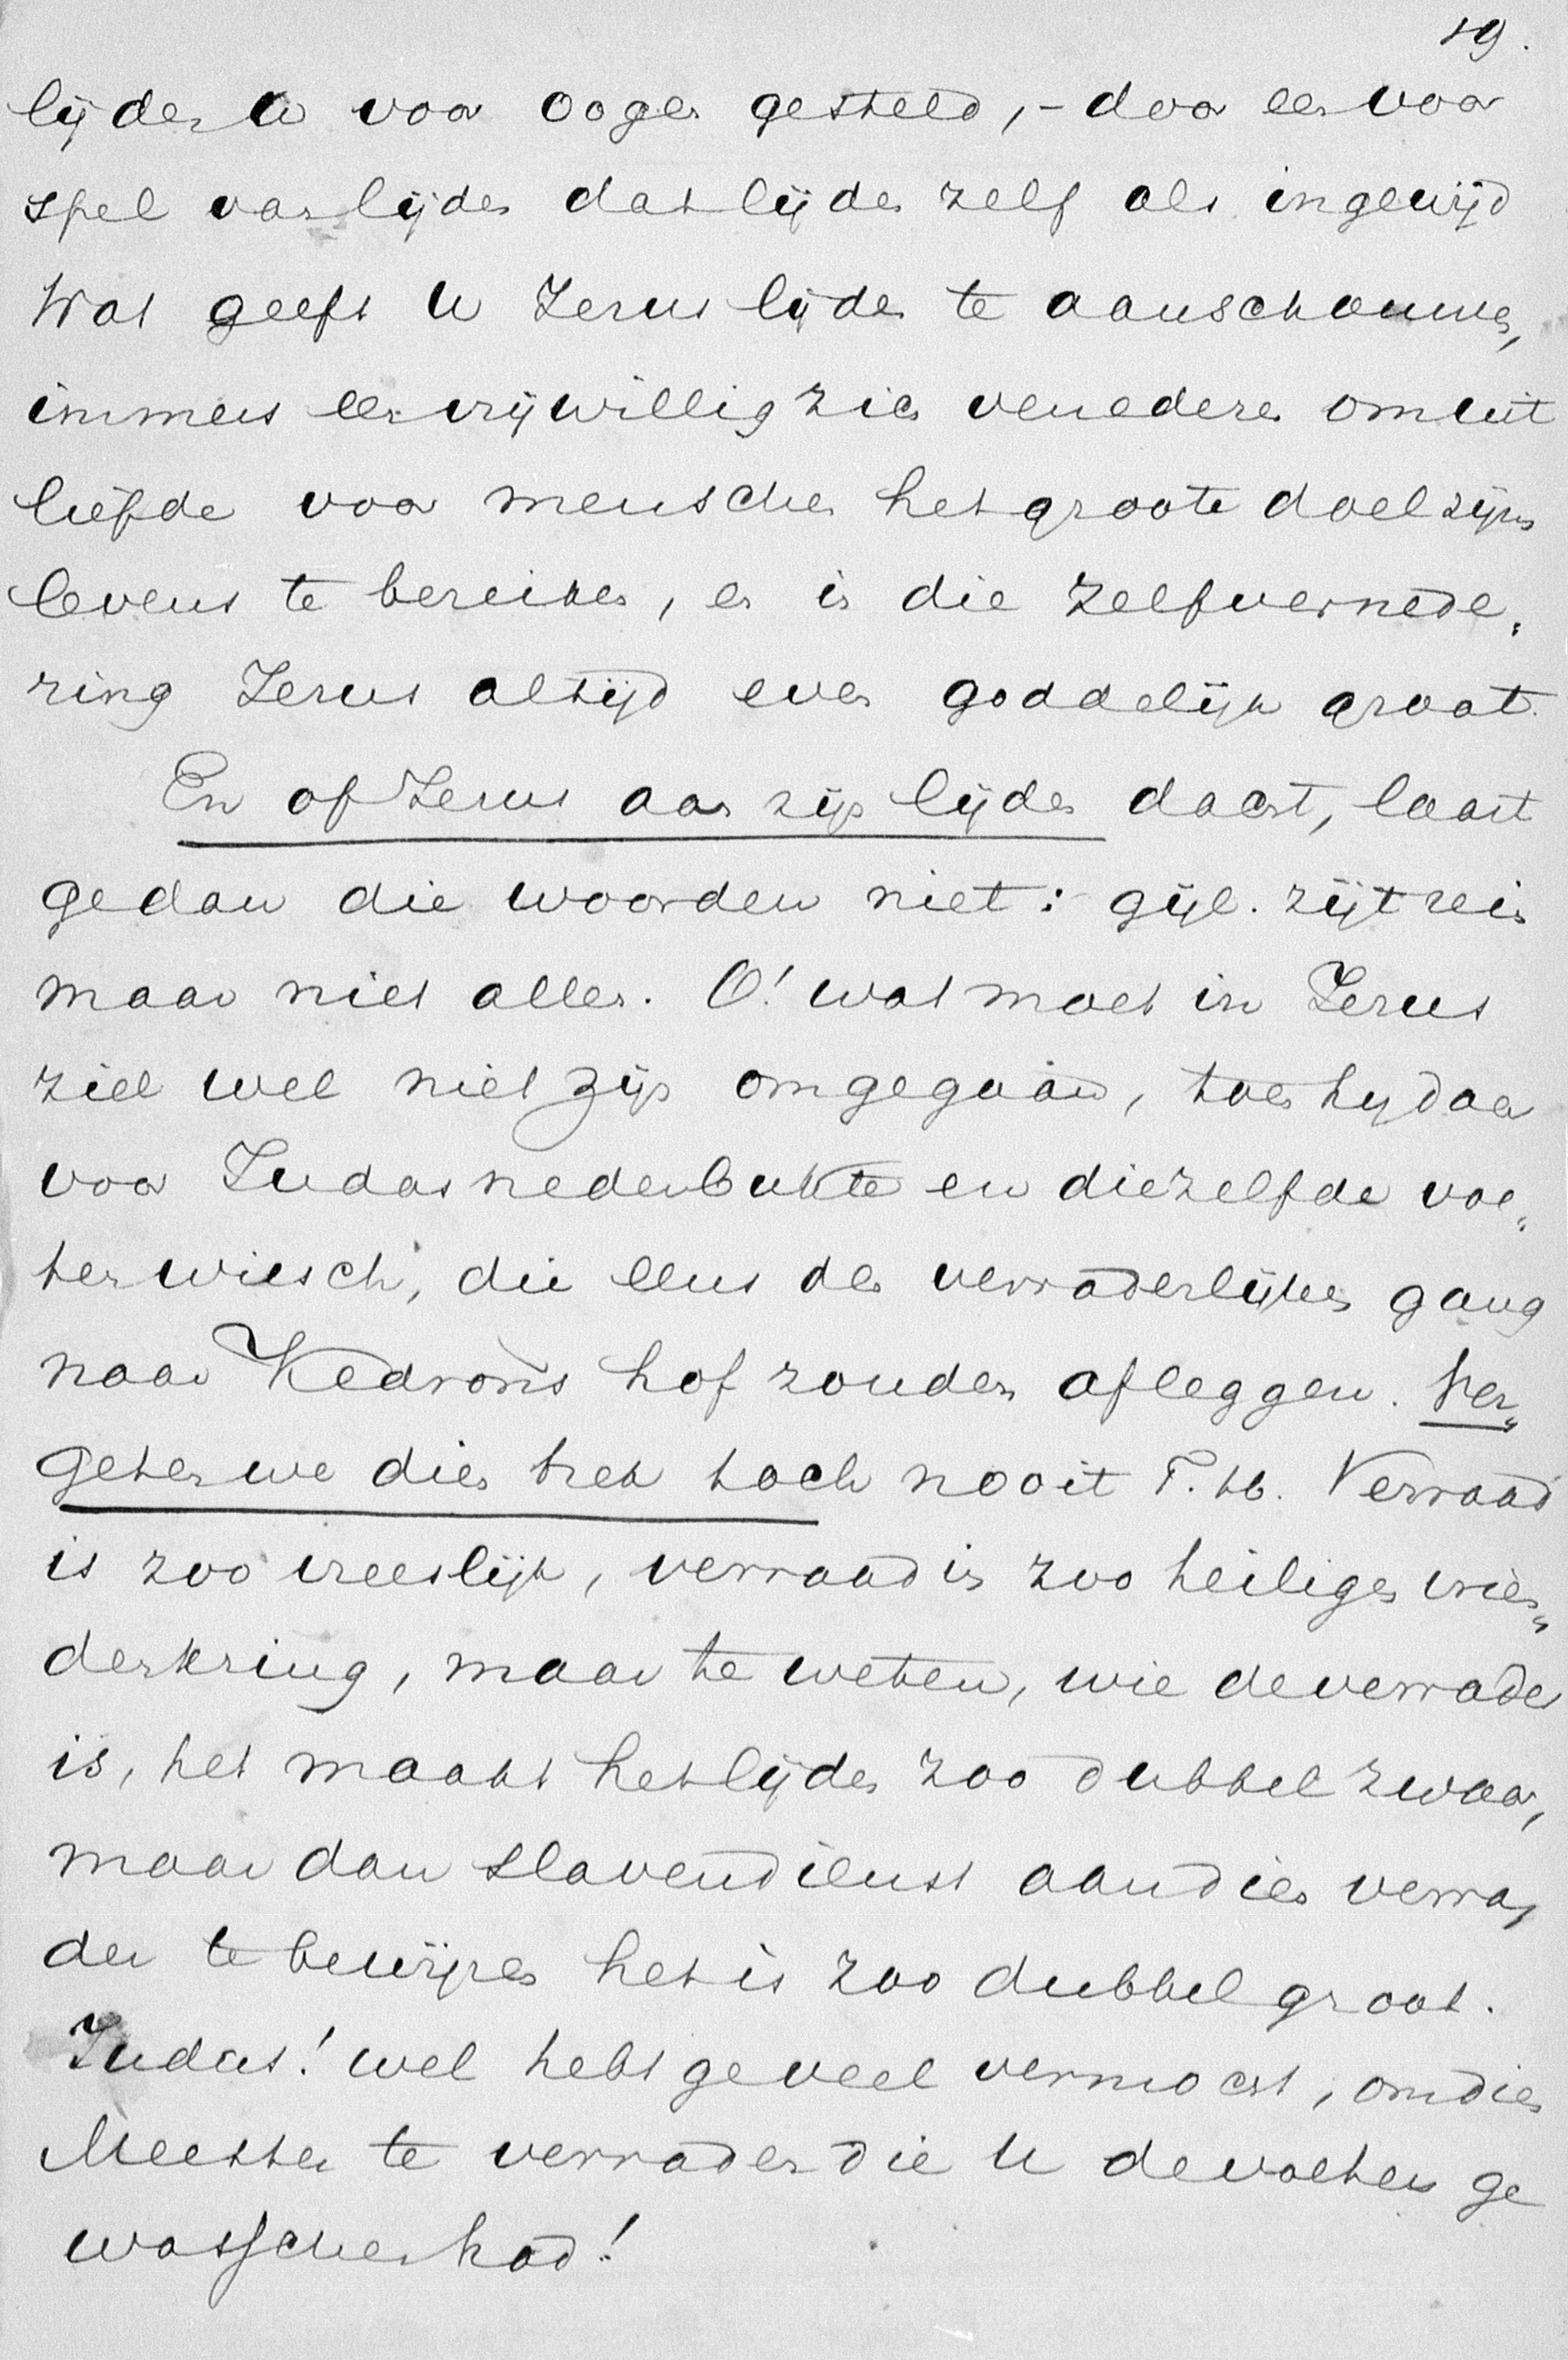 19.
lijden U voor oogen gesteld, - door een voor
spel van lijden dat lijden zelf als ingewijd
Wat geeft U Jezus lijden te aanschouwen,
immers een vrijwillig zich vernederen om uit
liefde voor menschen het groote doel zijns
levens te bereiken, en is die zelfvernede„
ring Jezus altijd even goddelijk groot.
En of Jezus aan zijn lijden dacht, laat
ge dan die woorden niet: gijl. zijt rein
maar niet allen. O! wat moet in Jezus
ziel wel niet zijn omgegaan, toen hij daar
voor Judas nederbukte en diezelfde voe„
ten wiesch, die eens den verraderlijken gang
naar Kedrons hof zouden afleggen. Ver„
geten we dien trek toch nooit T. H. Verraad
is zoo vreeslijk, verraad in zoo heiligen vrien„
denkring, maar te weten, wie de verrader
is, het maakt het lijden zoo dubbel zwaar,
maar dan slavendienst aan dien verra„
der te bewijzen het is zoo dubbel groot.
Judas! wel hebt ge veel vermocht, om dien
Meester te verraden die U de voeten ge
wasschen had!